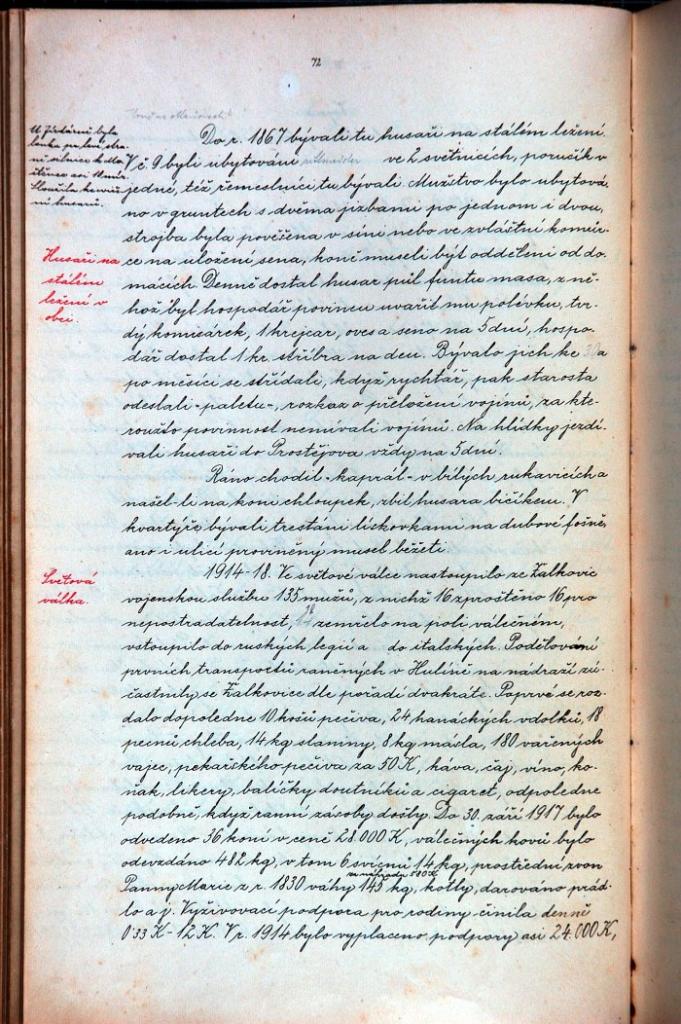 72
Do r. 1867 bývali tu husaři na stálém ležení.
V č 9 byli ubytováni ve 2 světnicích, poručík v
jedné, též řemeslníci tu bývali. Mužstvo bylo ubytová-
no v gruntech s dvěma jizbami po jednom i dvou,
strojba byla pověšena v síni nebo ve zvláštní komůr-
ce na uložení sena, koně museli být odděleni od do-
mácích. Denně dostal husar půl funtu masa, z ně-
hož byl hospodář povinen uvařit mu polévku, tvr-
dý komisárek, 1 krejcar, ovsa a seno na 5 dní, hospo-
dář dostal 1 kr. stříbra na den. Bývalo jich ke 30 a
po měsíci se střídali, když rychtář, pak starosta
odeslali "paletu", rozkaz o přeložení vojínů, za kte-
roužto povinnost nemívali vojínů. Na hlídky jezdí-
vali husaři do Prostějova vždy na 5 dní.
Ráno chodil "kaprál" v bílých rukavicích a
našel-li na koni chloupek, zbil husara bičíkem. V
kvartýře bývali trestáni lískovkami na dubové fošně,
ano i ulicí proviněný musel běžeti.
Husaři na
stálém
ležení v
obci.
1914-18. Ve světové válce nastoupilo ze Žalkovic
vojenskou službu 135 mužů, z nichž 16 zproštěno 16 pro
nepostradatelnost, zemřelo na poli válečném,
vstoupilo do ruských legií a do italských. Podělování
prvních transportů raněných v Hulíně na nádraží zú-
častnily se Žalkovice dle pořadí dvakráte. Poprvé se roz-
dalo dopoledne 10 košů pečiva, 24 hanáckých vdolků, 18
pecnů chleba, 14 kg slaniny, 8 kg másla, 180 vařených
vajec, pekařského pečiva za 50 K, káva, čaj, víno, ko-
ňak, likery, balíčky doutníků a cigaret, odpoledne
podobně, když ranní zásoby došly. Do 30. září 1917 bylo
odvedeno 36 koní v ceně 28.000 K, válečných kovů bylo
odevzdáno 482 kg, v tom 6 svícnů 14 kg, prostřední zvon
Panny Marie z r. 1830 váhy 145 kg, kotly, darováno prád-
lo a j. Vyživovací podpora pro rodiny činila denně
0˙33 K - 12 K. V r. 1914 bylo vyplaceno podpory asi 24.000 K,
Světová
válka.